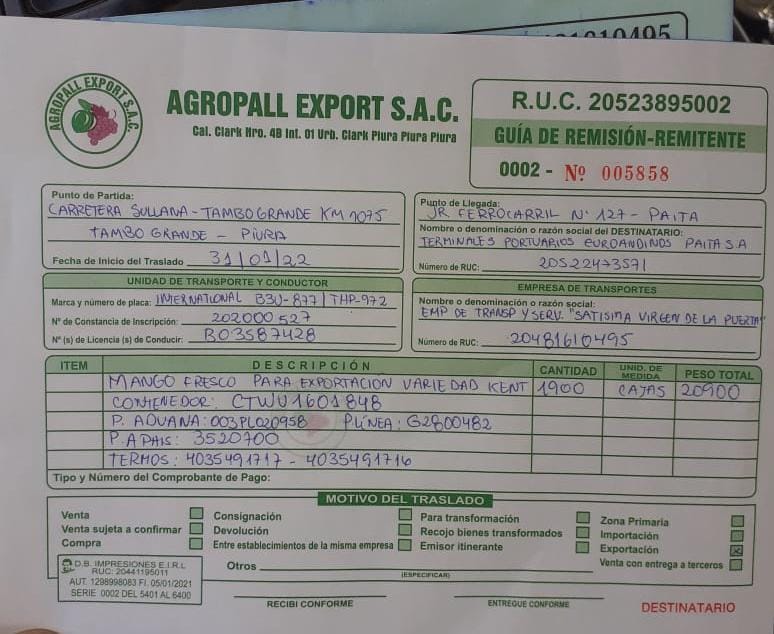 010495
AGROPALL EXPORT S.A.C.
AGROPALL EXPORT S.A.C.
Cal. Clark Nro. 4B Int. 01 Urb. Clark Piura Piura Piura
R.U.C. 20523895002
GUÍA DE REMISIÓN-REMITENTE
0002 - Nº 005858
Punto de Partida:
CARRETERA SULLANA - TAMBOGRANDE KM 1075
TAMBO GRANDE - PIURA
Fecha de Inicio del Traslado 31/01/22
Punto de Llegada:
JR FERROCARRIL Nº 127 - PAITA
Nombre o denominación o razón social del DESTINATARIO:
TERMINALES PORTUARIOS EUROANDINOS PAITA SA
Número de RUC: 20522473571
UNIDAD DE TRANSPORTE Y CONDUCTOR
Marca y número de placa: INTERNATIONAL B3U-877 / THP-972
Nº de Constancia de Inscripción: 202000527
Nº (s) de Licencia (s) de Conducir: B03587428
EMPRESA DE TRANSPORTES
Nombre o denominación o razón social:
EMP DE TRANSP Y SERV. "SATISIMA VIRGEN DE LA PUERTA"
Número de RUC: 20481610495
ITEM DESCRIPCIÓN CANTIDAD UNID. DE MEDIDA PESO TOTAL
MANGO FRESCO PARA EXPORTACION VARIEDAD KENT 1900 CAJAS 20900
CONTENEDOR: CTWU1601848
P. ADUANA: 003PL020958 P LÍNEA: G2800482
P. APAIS: 3520700
TERMOS: 4035491717 - 4035491716
Tipo y Número del Comprobante de Pago:
MOTIVO DEL TRASLADO
Venta Consignación Para transformación Zona Primaria
Venta sujeta a confirmar Devolución Recojo bienes transformados Importación
Compra Entre establecimientos de la misma empresa Emisor itinerante Exportación X
Otros Venta con entrega a terceros
(ESPECIFICAR)
D.B. IMPRESIONES E.I.R.L
RUC: 20441195011
AUT. 1298998083 FI. 05/01/2021
SERIE 0002 DEL 5401 AL 6400
RECIBI CONFORME ENTREGUE CONFORME DESTINATARIO